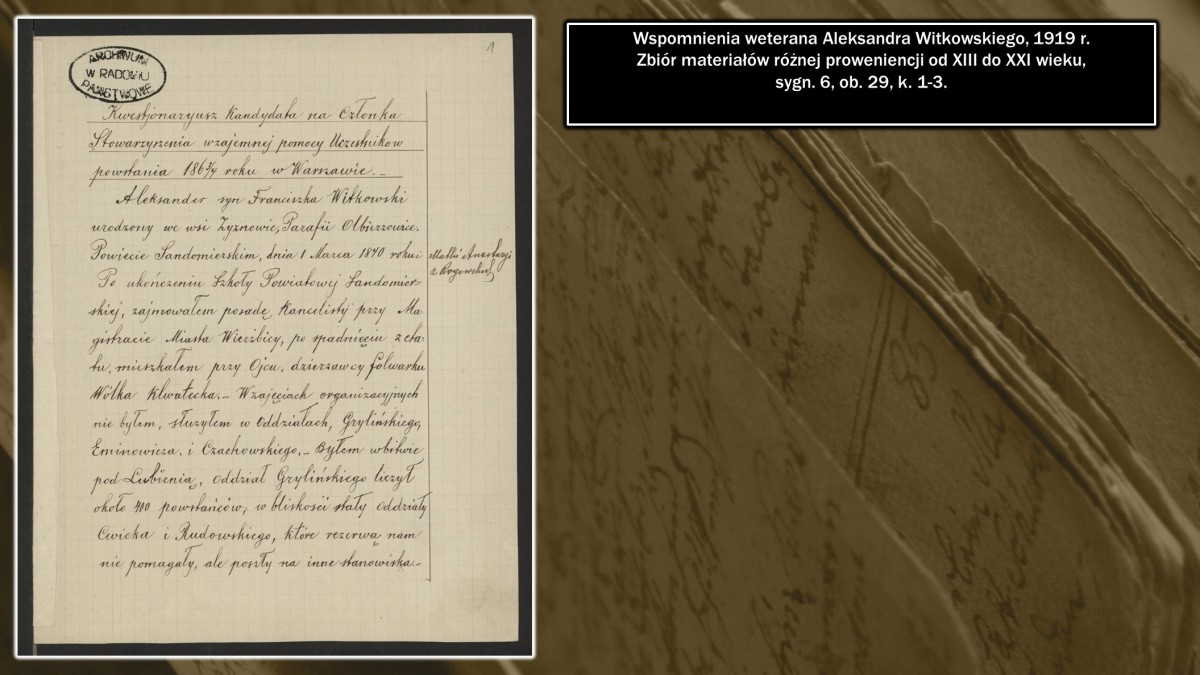 1
ARCHIWUM
W RADOMIU
PAŃSTWOWE
Kwestjonaryusz Kandydata na Członka
Stowarzyszenia wzajemnej pomocy Uczestników
powstania 186¾ roku w Warszawie.–
Aleksander syn Franciszka Witkowski
urodzony we wsi Żyznowie, Parafii
Powiecie Sandomierskim, dnia 1 Marca 1840 roku
Matki Anastazji
z Rogowskich
Po ukończeniu Szkoły Powiatowej Sandomier-
skiej, zajmowałem posadę Kancelisty przy Ma-
gistracie Miasta Wierzbicy, po spadnięciu z eta-
tu, mieszkałem przy Ojcu, dzierzawcy folwarku
Wólka Klwatecka.– W zajęciach organizacyjnych
nie byłem, służyłem w Oddziałach, Grylińskiego,
Eminowicza, i Czachowskiego.– Byłem w bitwie
pod Lubienią, Oddział Grylińskiego liczył
około 400 powstańców, w bliskości stały Oddziały
Cwieka i Rudowskiego, które rezerwą nam
nie pomagały, ale poszły na inne stanowiska.–
Wspomnienia weterana Aleksandra Witkowskiego, 1919 r.
Zbiór materiałów różnej proweniencji od XIII do XXI wieku,
sygn. 6, ob. 29, k. 1-3.